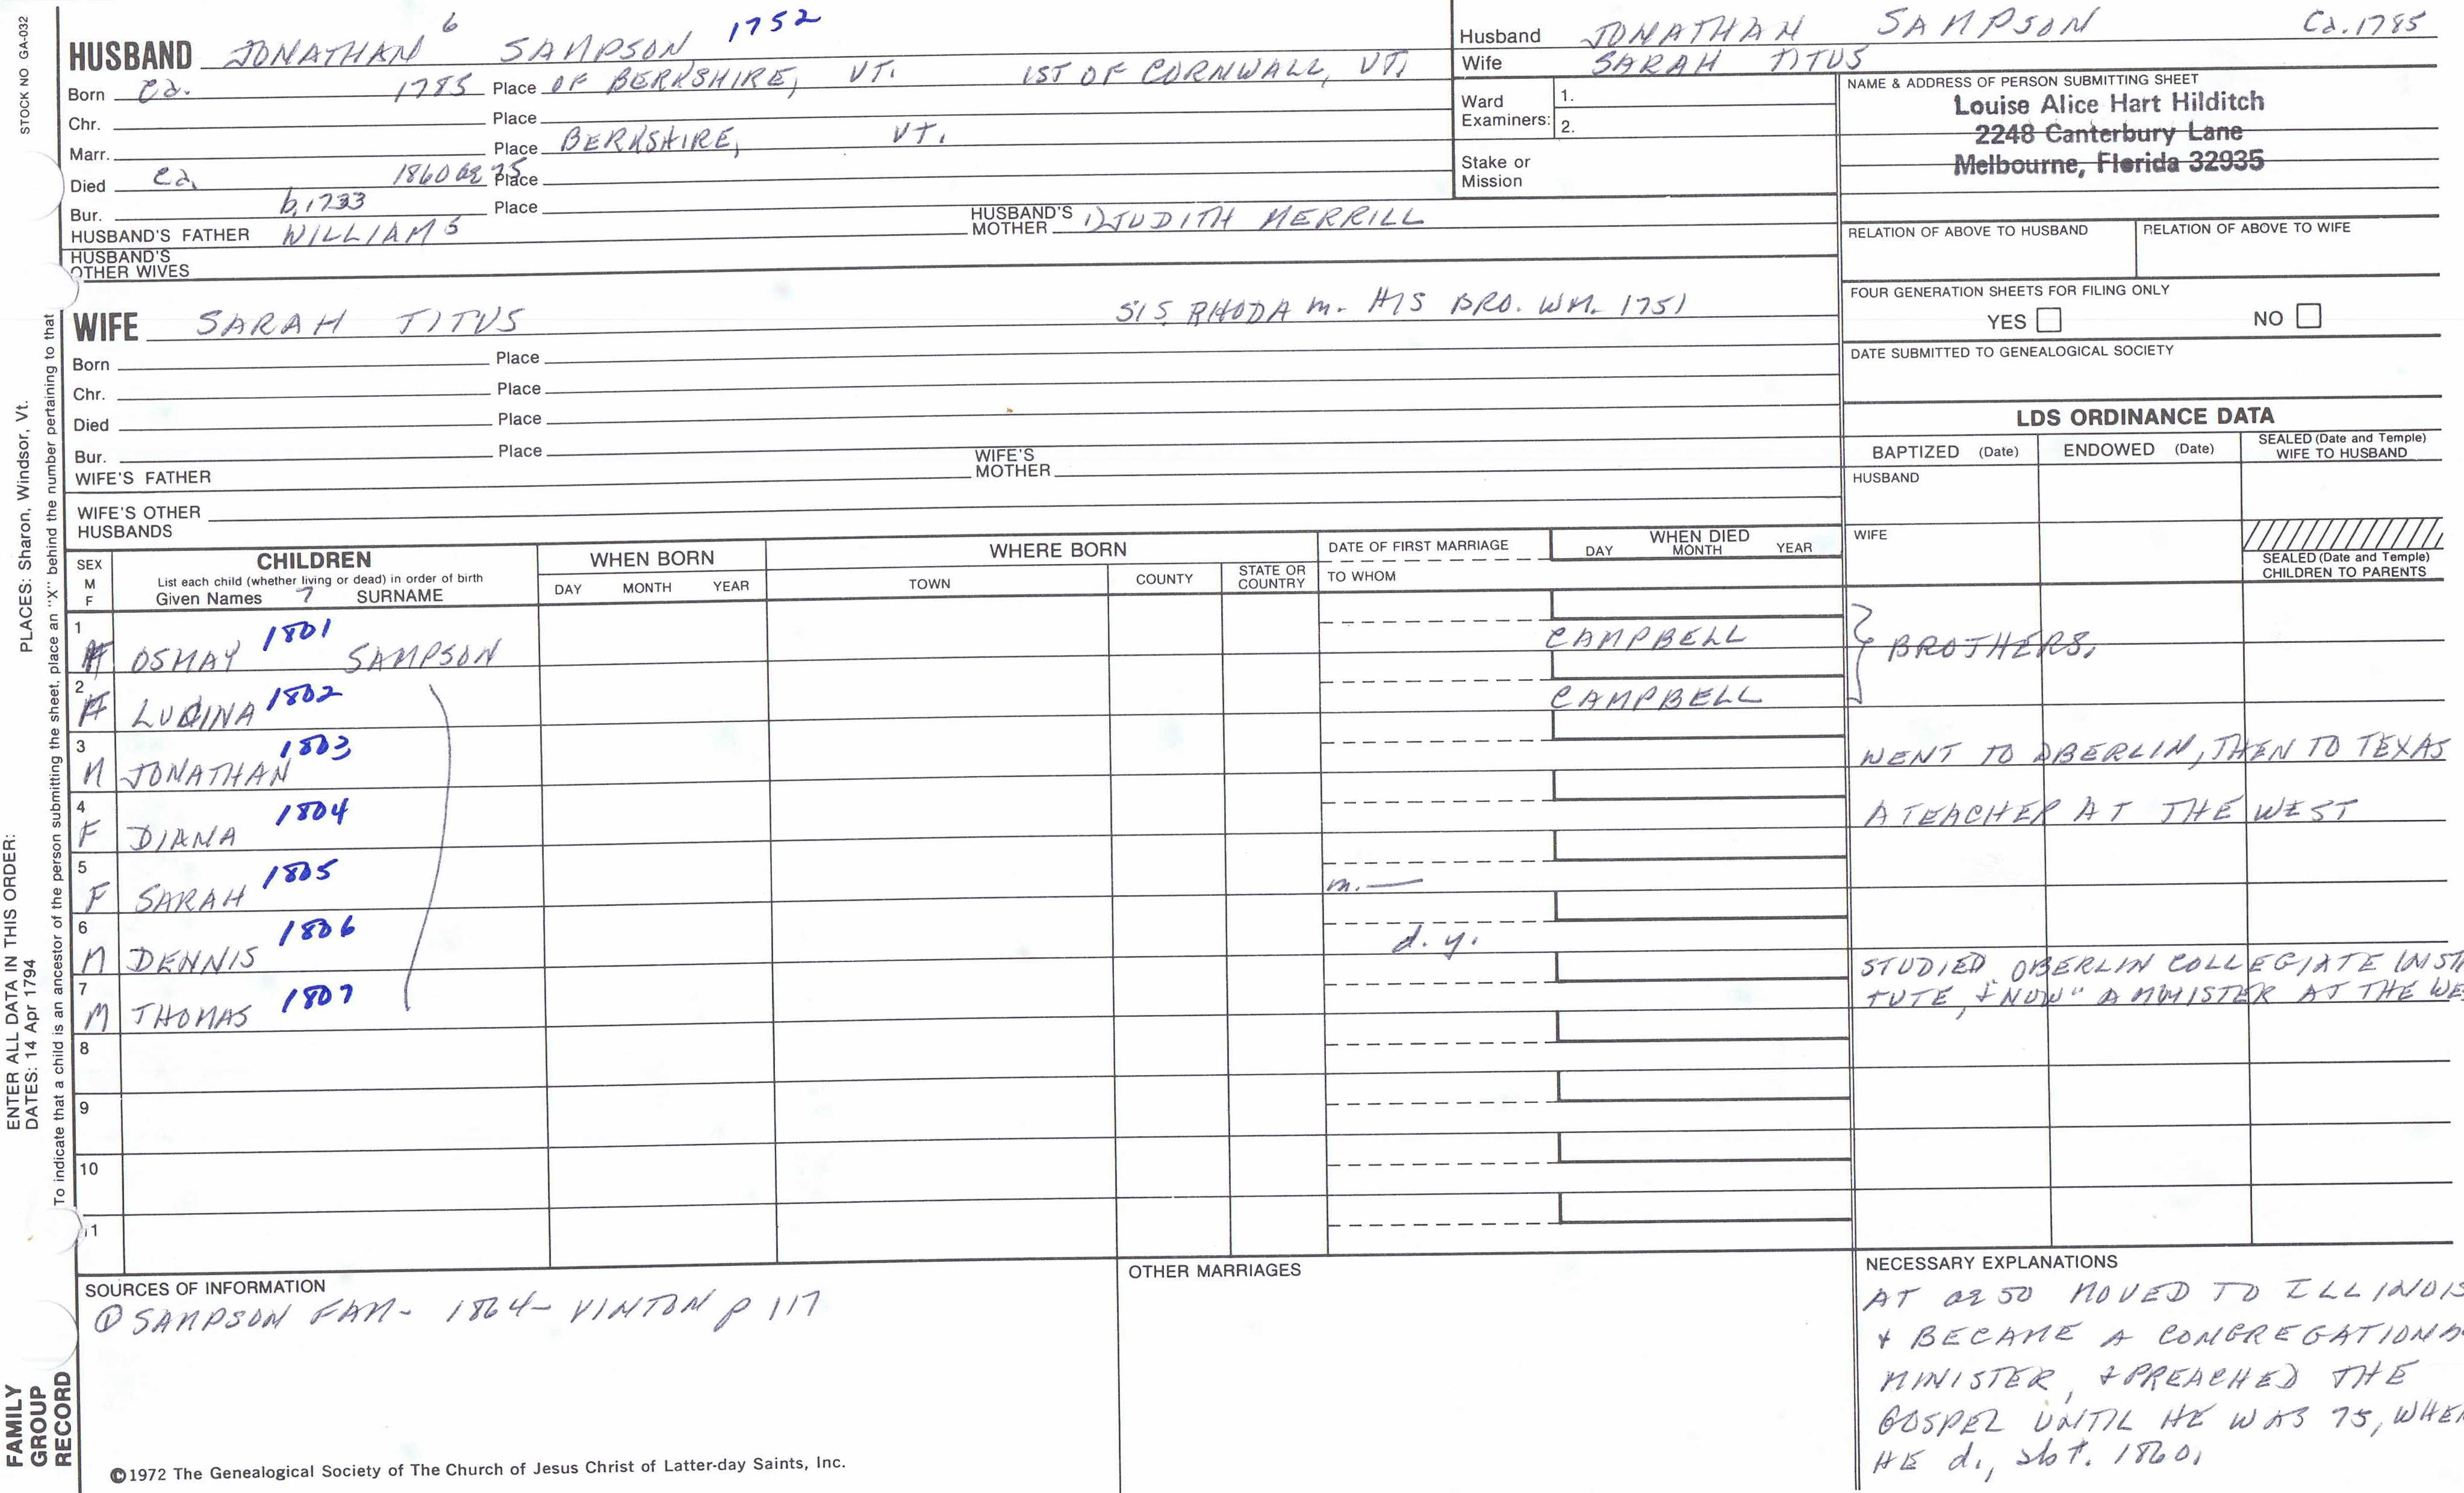 STOCK NO GA-032
PLACES: Sharon, Windsor, Vt.
ENTER ALL DATA IN THIS ORDER:
DATES: 14 Apr 1794
To indicate that a child is an ancestor of the person submitting the sheet, place an "X" behind the number pertaining to that
FAMILY
GROUP
RECORD
HUSBAND JONATHAN 6 SAMPSON 1752
Born ca. 1785 Place OF BERKSHIRE, VT. 1ST OF CORNWALL, VT.
Chr. Place
Marr. Place BERKSHIRE, VT.
Died ca. 1860 ae 75 Place
Bur. b. 1733 Place
HUSBAND'S FATHER WILLIAM 5 HUSBAND'S MOTHER 1) JUDITH MERRILL
HUSBAND'S
OTHER WIVES
WIFE SARAH TITUS SIS. RHODA m. HIS BRO. WM. 1751
Born Place
Chr. Place
Died Place
Bur. Place
WIFE'S FATHER WIFE'S MOTHER
WIFE'S OTHER
HUSBANDS
Husband JONATHAN SAMPSON Ca. 1785
Wife SARAH TITUS
Ward
Examiners: 1.
2.
Stake or
Mission
NAME & ADDRESS OF PERSON SUBMITTING SHEET
Louise Alice Hart Hilditch
2248 Canterbury Lane
Melbourne, Florida 32935
RELATION OF ABOVE TO HUSBAND RELATION OF ABOVE TO WIFE
FOUR GENERATION SHEETS FOR FILING ONLY
YES NO
DATE SUBMITTED TO GENEALOGICAL SOCIETY
LDS ORDINANCE DATA
BAPTIZED (Date) ENDOWED (Date) SEALED (Date and Temple)
WIFE TO HUSBAND
HUSBAND
WIFE
SEALED (Date and Temple)
CHILDREN TO PARENTS
SEX
M
F
CHILDREN
List each child (whether living or dead) in order of birth
Given Names 7 SURNAME
WHEN BORN
DAY MONTH YEAR
WHERE BORN
TOWN COUNTY STATE OR
COUNTRY
DATE OF FIRST MARRIAGE
TO WHOM
WHEN DIED
DAY MONTH YEAR
1 F OSMAY 1801 SAMPSON CAMPBELL } BROTHERS.
2 F LUCINA 1802 CAMPBELL
3 M JONATHAN 1803 WENT TO OBERLIN, THEN TO TEXAS
4 F DIANA 1804 A TEACHER AT THE WEST
5 F SARAH 1805 m. —
6 M DENNIS 1806 d. y.
7 M THOMAS 1807 STUDIED OBERLIN COLLEGIATE INSTI
TUTE, & "NOW" A MINISTER AT THE WE
8
9
10
11
SOURCES OF INFORMATION
① SAMPSON FAM- 1864- VINTON p 117
OTHER MARRIAGES
NECESSARY EXPLANATIONS
AT ae 50 MOVED TO ILLINOIS
& BECAME A CONGREGATIONA
MINISTER, & PREACHED THE
GOSPEL UNTIL HE WAS 75, WHEN
HE d., abt. 1860.
©1972 The Genealogical Society of The Church of Jesus Christ of Latter-day Saints, Inc.